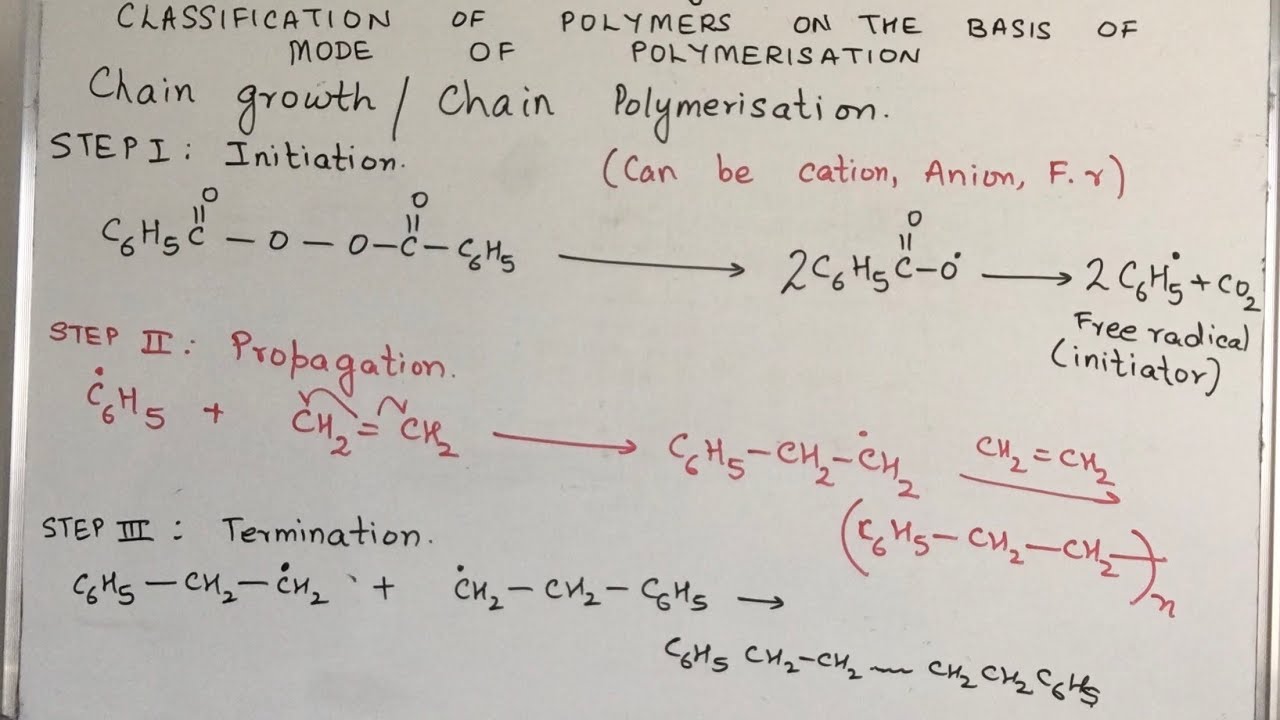 CLASSIFICATION OF POLYMERS ON THE BASIS OF
MODE OF POLYMERISATION
Chain growth / Chain Polymerisation.
STEP I : Initiation.
(Can be cation, Anion, F.r)
O O O
|| || ||
C₆H₅C — O — O — C — C₆H₅ ⟶ 2C₆H₅C — Ȯ ⟶ 2C₆Ḣ₅ + CO₂
Free radical
(initiator)
STEP II : Propagation.
Ċ₆H₅ + CH₂ = CH₂ ⟶ C₆H₅ — CH₂ — ĊH₂ CH₂ = CH₂ ⟶
(C₆H₅ — CH₂ — CH₂ —)n
STEP III : Termination.
C₆H₅ — CH₂ — ĊH₂ + ĊH₂ — CH₂ — C₆H₅ ⟶
C₆H₅ CH₂ — CH₂ — CH₂ CH₂ C₆H₅